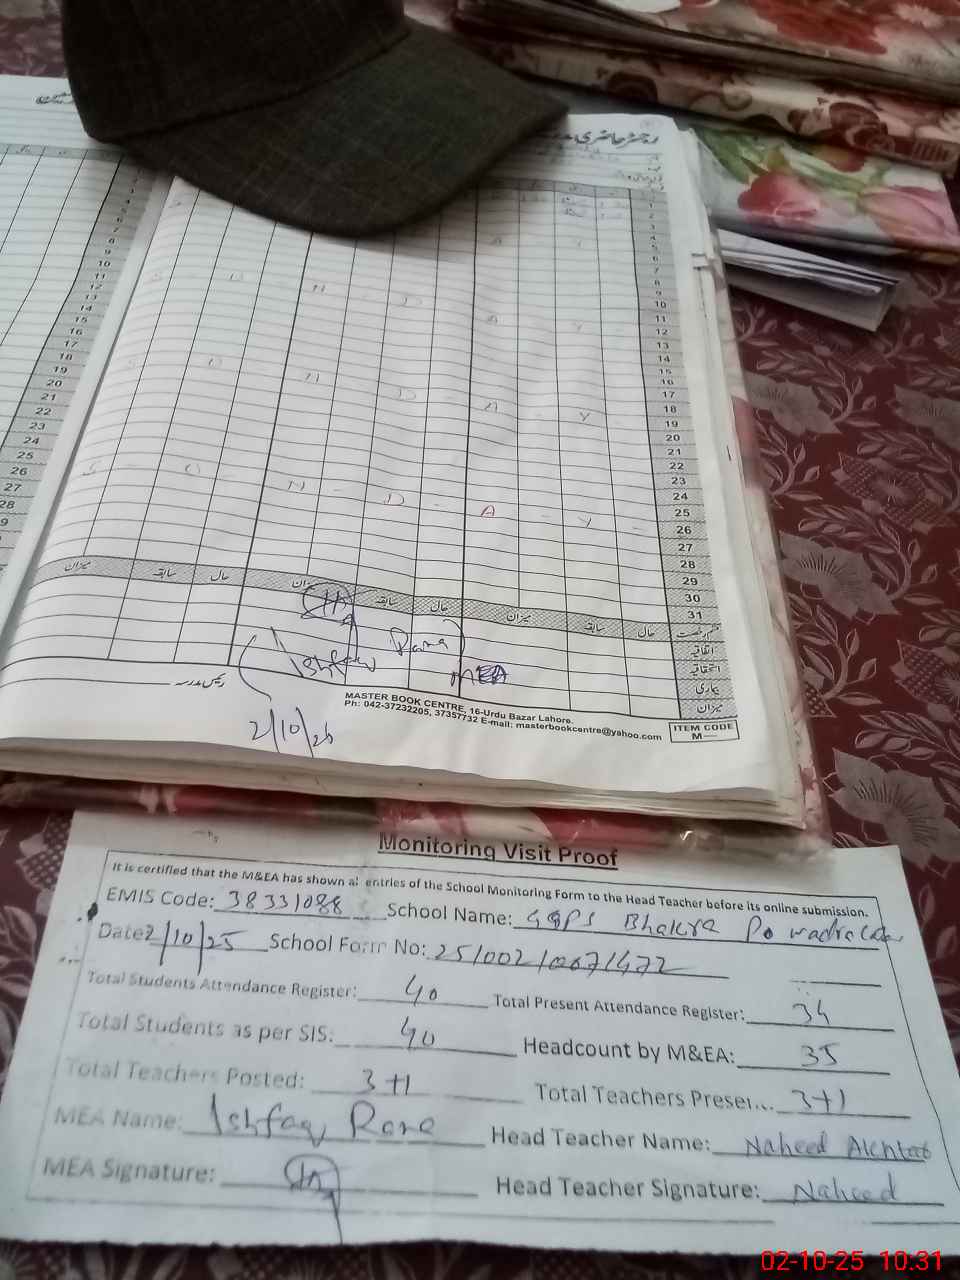 رجسٹر حاضری
1
2
3
4
5
6
7
8
9
10
11
12
13
14
15
16
17
18
19
20
21
22
23
24
25
26
27
28
29
30
31
S O N - D - A - Y -
میزان سابقہ حال میزان سابقہ حال میزان سابقہ حال
اتفاقیہ
استحقاقیہ
بیماری
میزان
Ishfaq Rana
MEA
رئیس مدرسہ
2/10/25
MASTER BOOK CENTRE, 16-Urdu Bazar Lahore.
Ph: 042-37232205, 37357732 E-mail: masterbookcentre@yahoo.com
ITEM CODE
M—
Monitoring Visit Proof
It is certified that the M&EA has shown al entries of the School Monitoring Form to the Head Teacher before its online submission.
EMIS Code: 38331088 School Name: GGPS Bhakra Po
Date: 2/10/25 School Form No: 25100210071472
Total Students Attendance Register: 40 Total Present Attendance Register: 34
Total Students as per SIS: 40 Headcount by M&EA: 35
Total Teachers Posted: 3+1 Total Teachers Presen... 3+1
MEA Name: Ishfaq Rana Head Teacher Name: Naheed Akhtar
MEA Signature: Head Teacher Signature: Naheed
02-10-25 10:31